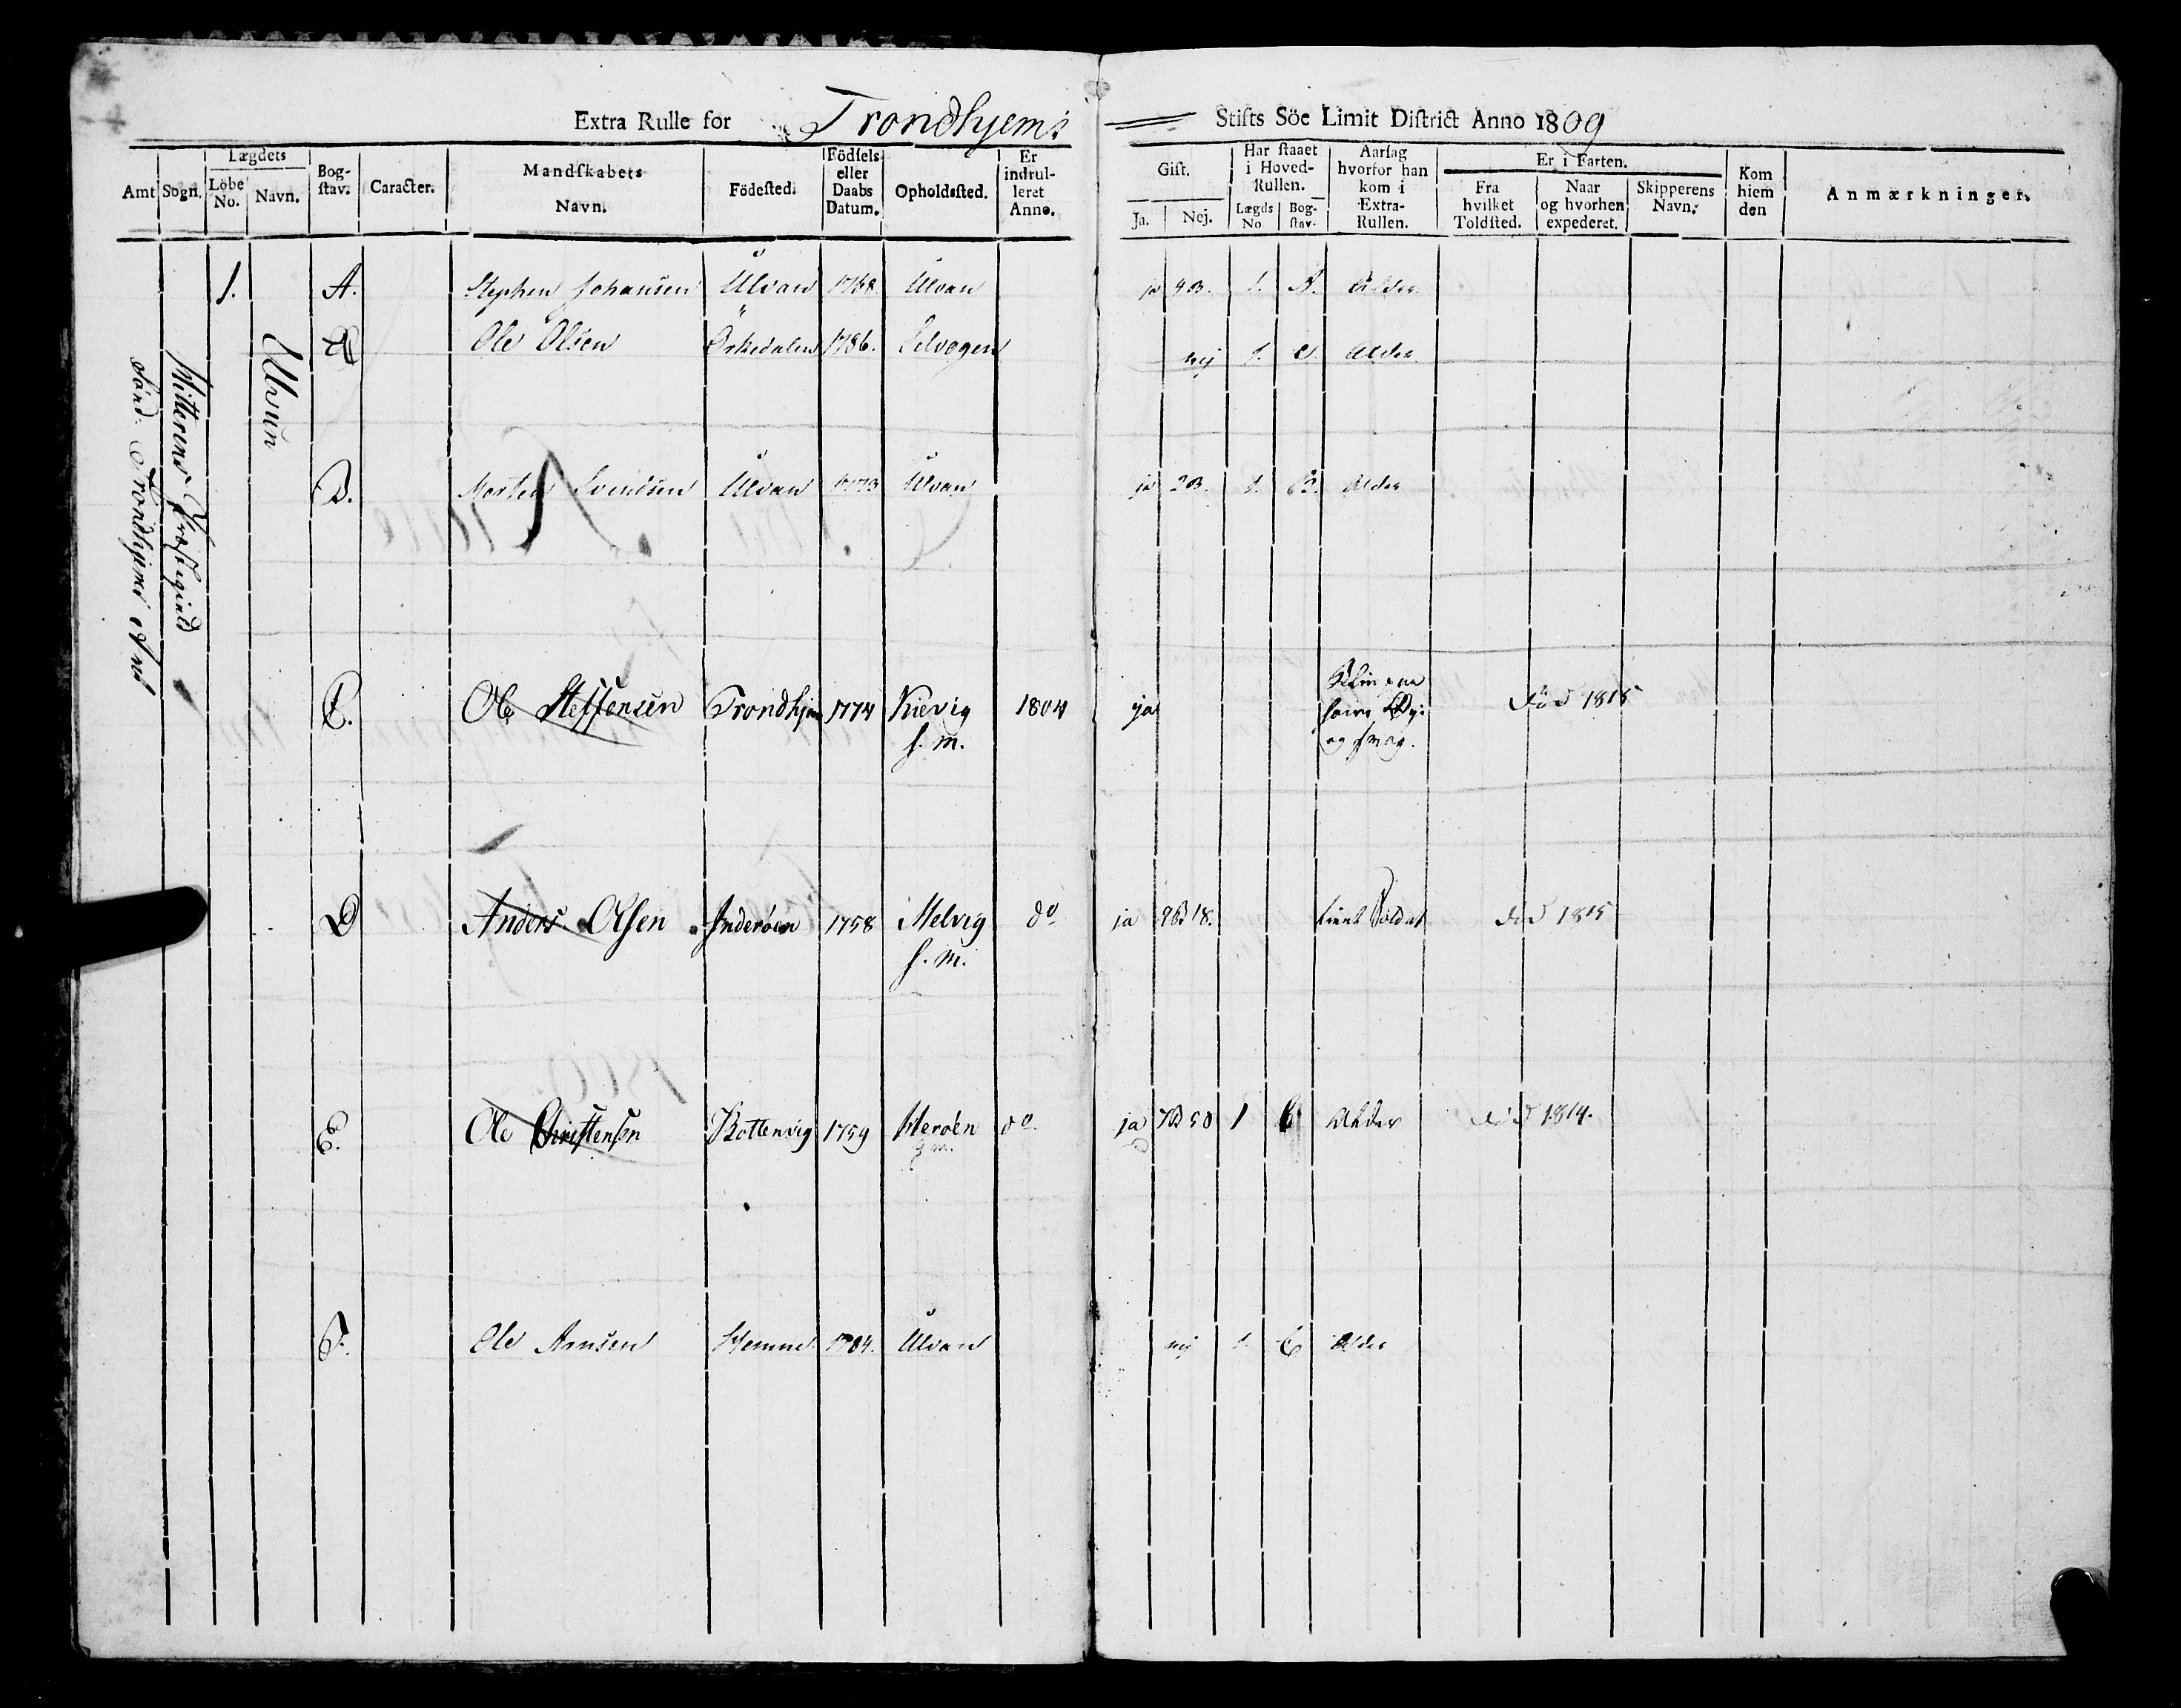 Extra Rulle for Trondhjems Stifts Söe Limit District Anno 1809
Amt Sogn. Lægdets Löbe No. Navn. Bog-stav. Caracter. Mandskabets Navn. Födested. Födsels eller Daabs Datum. Opholdssted. Er indrul-leret Anno. Gift. Ja. Nej. Har staaet i Hoved-Rullen. Lægds No Bog-stav. Aarsag hvorfor han kom i Extra-Rullen. Er i Farten. Fra hvilket Toldsted. Naar og hvorhen expederet. Skipperens Navn. Kom hiem den Anmærkninger.
Sönd: Trondhjems Amt
Hitterens Præstegield
1. Ulvun
A. Stephen Johansen Ulvan 1768. Ulvan ja 4 B. 1. A. Alder
Ole Olsen Örkedalen 1786. Selvogen nej 1. C. Alder
B. Morten Svendsen Ulvan 1773 Ulvan ja 2 B. 1. B. Alder
C. Ole Steffensen Trondhjem 1774 Kievig 1804 ja död 1815
s. m. og svag.
D Anders Olsen Inderöen 1758 Melvig do ja tient Soldat död 1815
s. m.
E. Ole Christensen Bottenvig 1759 Heröen do ja 1 C Alder död 1814.
F. Ole Arnsen Hemne 1784. Ulvan nej 1. C Alder